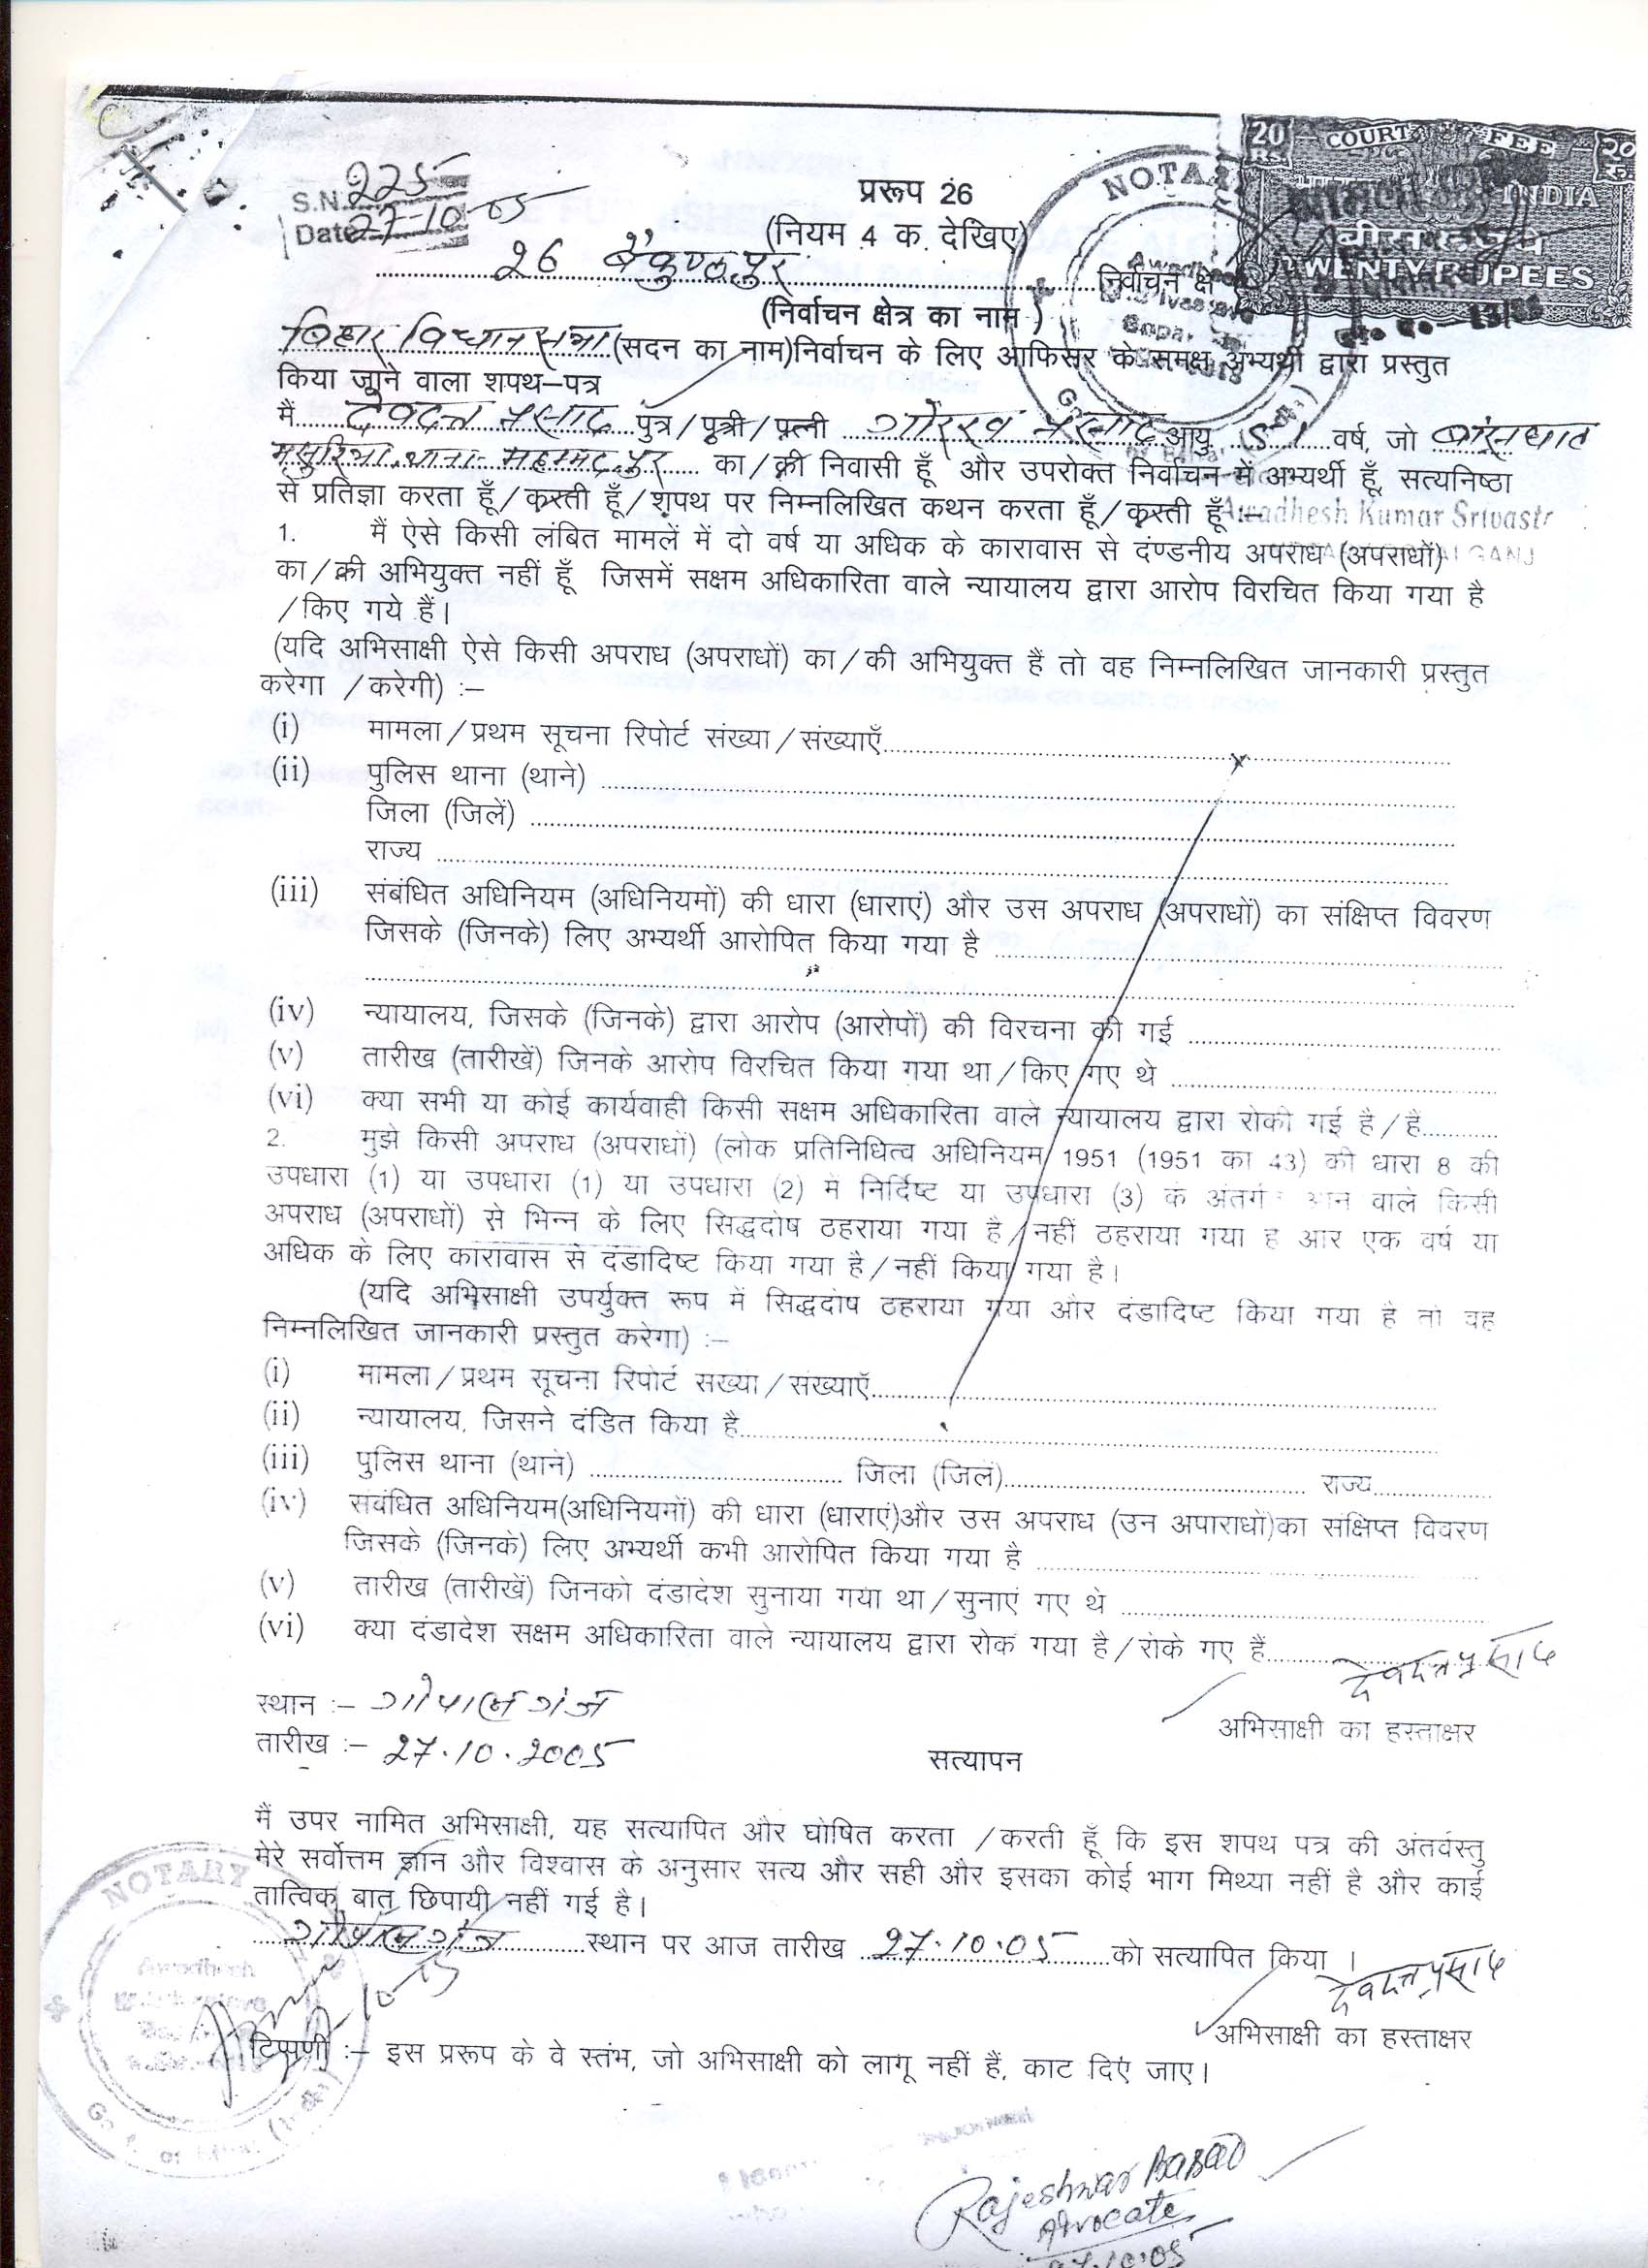 20 COURT FEE 20
INDIA
बीस रुपये
TWENTY RUPEES
NOTARY
S.N. 225
Date 27-10-05
प्ररूप 26
(नियम 4 क. देखिए)
26 बैकुण्ठपुर निर्वाचन क्षे
(निर्वाचन क्षेत्र का नाम )
बिहार विधान सभा (सदन का नाम)निर्वाचन के लिए आफिसर के समक्ष अभ्यर्थी द्वारा प्रस्तुत
किया जाने वाला शपथ–पत्र
मैं देवदत्त प्रसाद पुत्र/पुत्री/पत्नी गोरख प्रसाद आयु 51 वर्ष, जो बांसघाट
मसुरिया, थाना- महम्मदपुर का/की निवासी हूँ और उपरोक्त निर्वाचन में अभ्यर्थी हूँ, सत्यनिष्ठा
से प्रतिज्ञा करता हूँ/करती हूँ/शपथ पर निम्नलिखित कथन करता हूँ/करती हूँ :–
Awadhesh Kumar Srivast
1. मैं ऐसे किसी लंबित मामलें में दो वर्ष या अधिक के कारावास से दंण्डनीय अपराध (अपराधों)
का/की अभियुक्त नहीं हूँ जिसमें सक्षम अधिकारिता वाले न्यायालय द्वारा आरोप विरचित किया गया है
/किए गये हैं।
(यदि अभिसाक्षी ऐसे किसी अपराध (अपराधों) का/की अभियुक्त हैं तो वह निम्नलिखित जानकारी प्रस्तुत
करेगा /करेगी) :–
(i) मामला/प्रथम सूचना रिपोर्ट संख्या/संख्याएँ
(ii) पुलिस थाना (थाने)
जिला (जिलें)
राज्य
(iii) संबंधित अधिनियम (अधिनियमों) की धारा (धाराएं) और उस अपराध (अपराधों) का संक्षिप्त विवरण
जिसके (जिनके) लिए अभ्यर्थी आरोपित किया गया है
(iv) न्यायालय, जिसके (जिनके) द्वारा आरोप (आरोपों) की विरचना की गई
(v) तारीख (तारीखें) जिनके आरोप विरचित किया गया था/किए गए थे
(vi) क्या सभी या कोई कार्यवाही किसी सक्षम अधिकारिता वाले न्यायालय द्वारा रोकी गई है/हैं
2. मुझे किसी अपराध (अपराधों) (लोक प्रतिनिधित्व अधिनियम 1951 (1951 का 43) की धारा 8 की
उपधारा (1) या उपधारा (1) या उपधारा (2) में निर्दिष्ट या उपधारा (3) के अंतर्ग वाले किसी
अपराध (अपराधों) से भिन्न के लिए सिद्धदोष ठहराया गया है/नहीं ठहराया गया है और एक वर्ष या
अधिक के लिए कारावास से दंडादिष्ट किया गया है/नहीं किया गया है।
(यदि अभिसाक्षी उपर्युक्त रूप में सिद्धदोष ठहराया गया और दंडादिष्ट किया गया है तो वह
निम्नलिखित जानकारी प्रस्तुत करेगा) :–
(i) मामला/प्रथम सूचना रिपोर्ट सख्या/संख्याएँ
(ii) न्यायालय, जिसने दंडित किया है
(iii) पुलिस थाना (थाने) जिला (जिलें) राज्य
(iv) संबंधित अधिनियम(अधिनियमों) की धारा (धाराएं)और उस अपराध (उन अपाराधों)का संक्षिप्त विवरण
जिसके (जिनके) लिए अभ्यर्थी कभी आरोपित किया गया है
(v) तारीख (तारीखें) जिनको दंडादेश सुनाया गया था/सुनाएं गए थे
(vi) क्या दंडादेश सक्षम अधिकारिता वाले न्यायालय द्वारा रोक गया है/रोके गए हैं
देवदत्त प्रसाद
स्थान :– गोपालगंज
अभिसाक्षी का हस्ताक्षर
तारीख :– 27.10.2005
सत्यापन
मैं उपर नामित अभिसाक्षी, यह सत्यापित और घोषित करता /करती हूँ कि इस शपथ पत्र की अंतर्वस्तु
मेरे सर्वोत्तम ज्ञान और विश्वास के अनुसार सत्य और सही और इसका कोई भाग मिथ्या नहीं है और काई
तात्विक बात छिपायी नहीं गई है।
गोपालगंज स्थान पर आज तारीख 27.10.05 को सत्यापित किया ।
देवदत्त प्रसाद
अभिसाक्षी का हस्ताक्षर
NOTARY
टिप्पणी :– इस प्ररूप के वे स्तंभ, जो अभिसाक्षी को लागू नहीं हैं, काट दिएं जाए।
Rajeshwar Prasad
Advocate
27.10.05